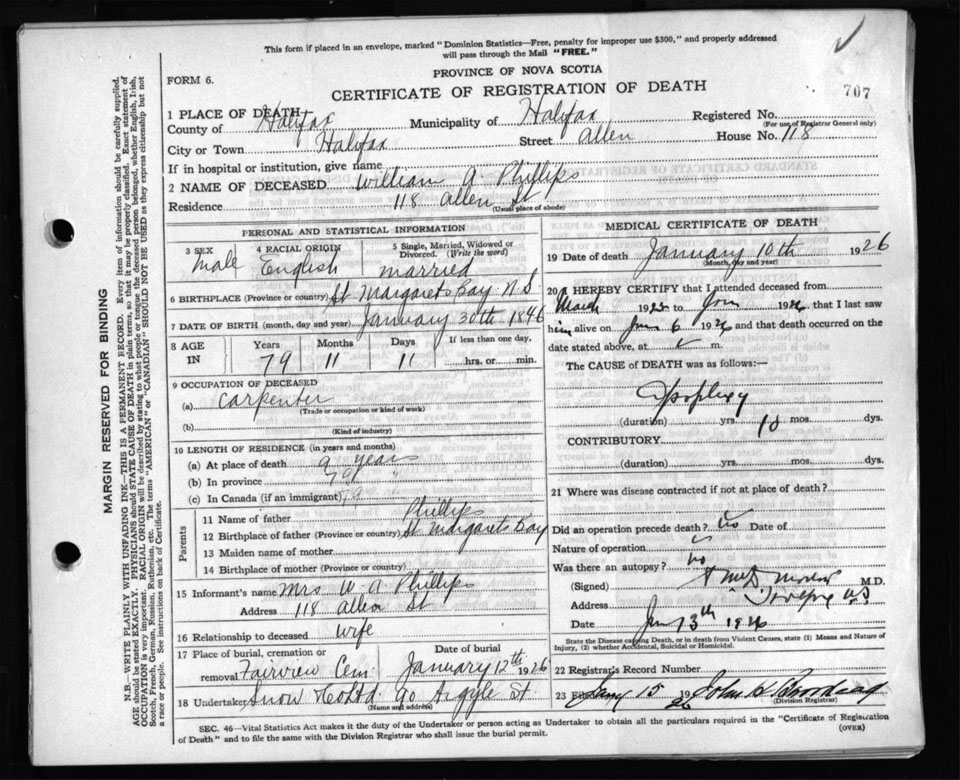 This form if placed in an envelope, marked "Dominion Statistics—Free, penalty for improper use $300," and properly addressed
will pass through the Mail "FREE."
PROVINCE OF NOVA SCOTIA
FORM 6.
CERTIFICATE OF REGISTRATION OF DEATH
707
1 PLACE OF DEATH
County of Halifax Municipality of Halifax Registered No.
(For use of Registrar General only)
City or Town Halifax Street Allen House No. 118
If in hospital or institution, give name
2 NAME OF DECEASED William A Phillips
Residence 118 Allen St
(Usual place of abode)
PERSONAL AND STATISTICAL INFORMATION
3 SEX Male
4 RACIAL ORIGIN English
5 Single, Married, Widowed or Divorced. (Write the word) married
6 BIRTHPLACE (Province or country) St Margarets Bay N S
7 DATE OF BIRTH (month, day and year) January 30th 1846
8 AGE IN Years 79 Months 11 Days 11 If less than one day, hrs. or min.
9 OCCUPATION OF DECEASED
(a) Carpenter
(Trade or occupation or kind of work)
(b)
(Kind of industry)
10 LENGTH OF RESIDENCE (in years and months)
(a) At place of death years
(b) In province "
(c) In Canada (if an immigrant)
Parents
11 Name of father Phillips
12 Birthplace of father (Province or country) St Margarets Bay
13 Maiden name of mother
14 Birthplace of mother (Province or country)
15 Informant's name Mrs W A Phillips
Address 118 Allen St
16 Relationship to deceased wife
17 Place of burial, cremation or removal Fairview Cem
Date of burial January 12th 1926
18 Undertaker Snow & Co Ltd 90 Argyle St
(Name and address)
MEDICAL CERTIFICATE OF DEATH
19 Date of death January 10th 1926
(Month, day and year)
20 I HEREBY CERTIFY that I attended deceased from
March 1925 to Jan 1926 that I last saw
him alive on Jan 6 1926 and that death occurred on the
date stated above, at m.
The CAUSE of DEATH was as follows:—
Apoplexy
(duration) yrs. 10 mos. dys.
CONTRIBUTORY
(duration) yrs. mos. dys.
21 Where was disease contracted if not at place of death?
Did an operation precede death? No Date of
Nature of operation
Was there an autopsy? No
(Signed) M.D.
Address
Date Jan 13th 1926
State the Disease causing Death, or in death from Violent Causes, state (1) Means and Nature of
Injury, (2) whether Accidental, Suicidal or Homicidal.
22 Registrar's Record Number
23 Filed Jany 15 1926 John H
(Division Registrar)
SEC. 46—Vital Statistics Act makes it the duty of the Undertaker or person acting as Undertaker to obtain all the particulars required in the "Certificate of Registration
of Death" and to file the same with the Division Registrar who shall issue the burial permit.
(OVER)
MARGIN RESERVED FOR BINDING
N.B.—WRITE PLAINLY WITH UNFADING INK—THIS IS A PERMANENT RECORD. Every item of information should be carefully supplied.
AGE should be stated EXACTLY. PHYSICIANS should STATE CAUSE OF DEATH in plain terms, so that it may be properly classified. Exact statement of
OCCUPATION is very important. RACIAL ORIGIN will be described by stating to what people or tongue the deceased person belonged, whether English, Irish,
Scotch, French, German, Russian, Ruthenian, etc. The terms "AMERICAN" or "CANADIAN" SHOULD NOT BE USED as they express citizenship but not
a race or people. See instructions on back of Certificate.